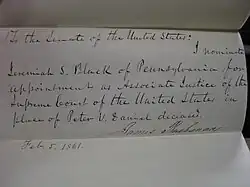 To the Senate of the United States:
I nominate
Jeremiah S. Black of Pennsylvania for
appointment as Associate Justice of the
Supreme Court of the United States in
place of Peter V. Daniel deceased.
James Buchanan
Feb 5, 1861.